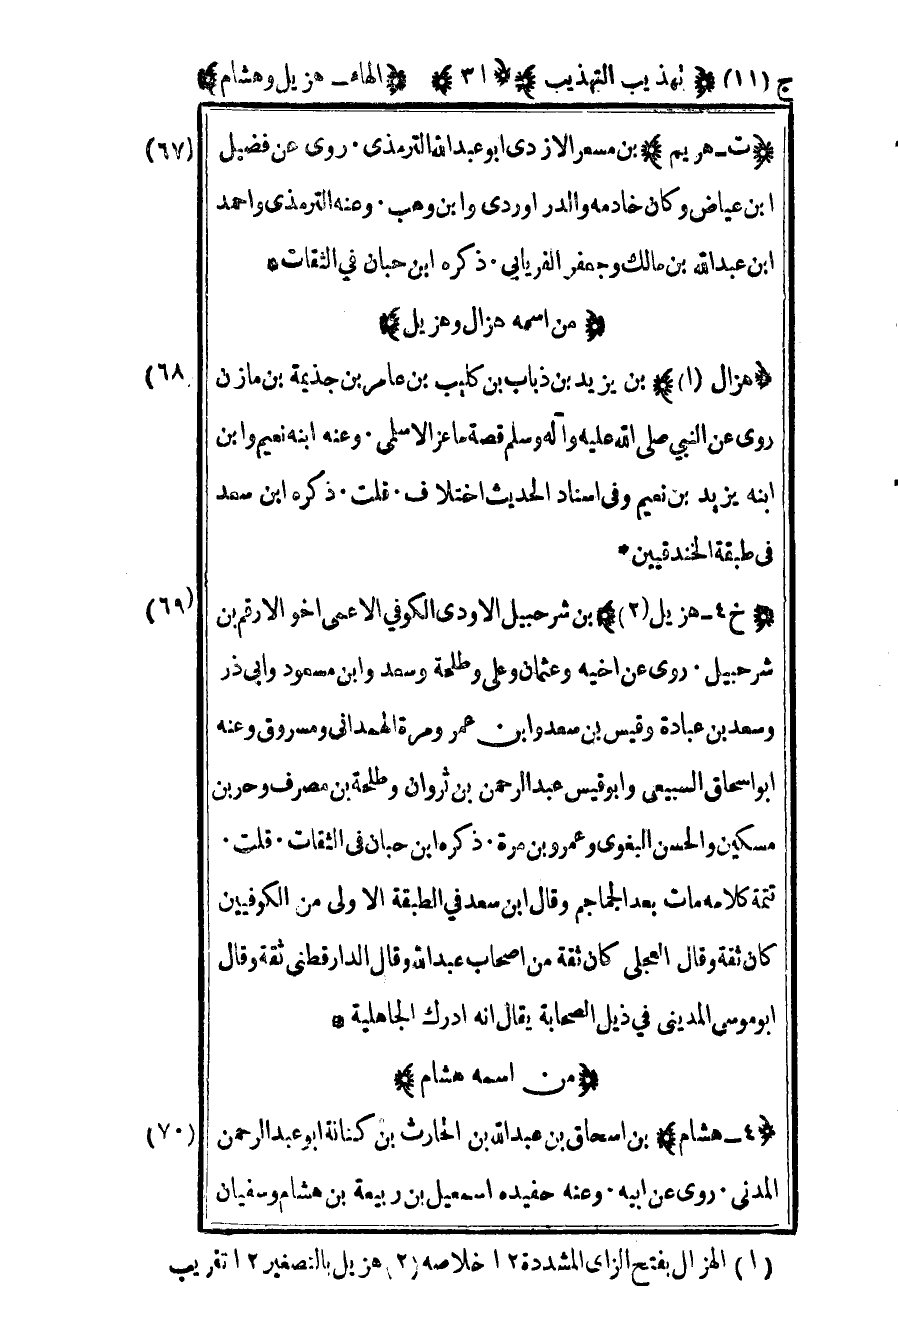 ج (١١) ﴿ تهذيب التهذيب ﴾ ﴿ ٣١ ﴾ ﴿ الهاء ـ هزيل وهشام ﴾
﴿ ت ـ هريم ﴾ بن مسعر الازدى ابو عبدالله الترمذى · روى عن فضيل (٦٧)
ابن عياض وكان خادمه والدراوردى وابن وهب · وعنه الترمذى واحمد
ابن عبدالله بن مالك وجعفر الفريابي · ذكره ابن حبان في الثقات *
﴿ من اسمه هزال وهزيل ﴾
﴿ هزال (١) ﴾ بن يزيد بن ذباب بن كليب بن عامر بن جذيمة بن مازن (٦٨)
روى عن النبي صلى الله عليه وآله وسلم قصة ماعز الاسلمى · وعنه ابنه نعيم وابن
ابنه يزيد بن نعيم وفى اسناد الحديث اختلاف · قلت · ذكره ابن سعد
فى طبقة الخندقيين *
﴿ خ ٤ ـ هزيل (٢) ﴾ بن شرحبيل الاودى الكوفي الاعمى اخو الارقم بن (٦٩)
شرحبيل · روى عن اخيه وعثمان وعلى وطلحة وسعد وابن مسعود وابى ذر
وسعد بن عبادة وقيس بن سعد وابن عمر ومرة الهمدانى ومسروق وعنه
ابو اسحاق السبيعى وابو قيس عبدالرحمن بن ثروان وطلحة بن مصرف وحر بن
مسكين والحسن البغوى وعمرو بن مرة · ذكره ابن حبان فى الثقات · قلت ·
تتمة كلامه مات بعد الجماجم وقال ابن سعد في الطبقة الاولى من الكوفيين
كان ثقة وقال العجلى كان ثقة من اصحاب عبدالله وقال الدارقطنى ثقة وقال
ابو موسى المدينى في ذيل الصحابة يقال انه ادرك الجاهلية *
﴿ من اسمه هشام ﴾
﴿ ٤ ـ هشام ﴾ بن اسحاق بن عبدالله بن الحارث بن كنانة ابو عبدالرحمن (٧٠)
المدنى · روى عن ابيه · وعنه حفيده اسمعيل بن ربيعة بن هشام وسفيان
(١) الهزال بفتح الزاى المشددة ١٢ خلاصه (٢) هزيل بالتصغير ١٢ تقريب